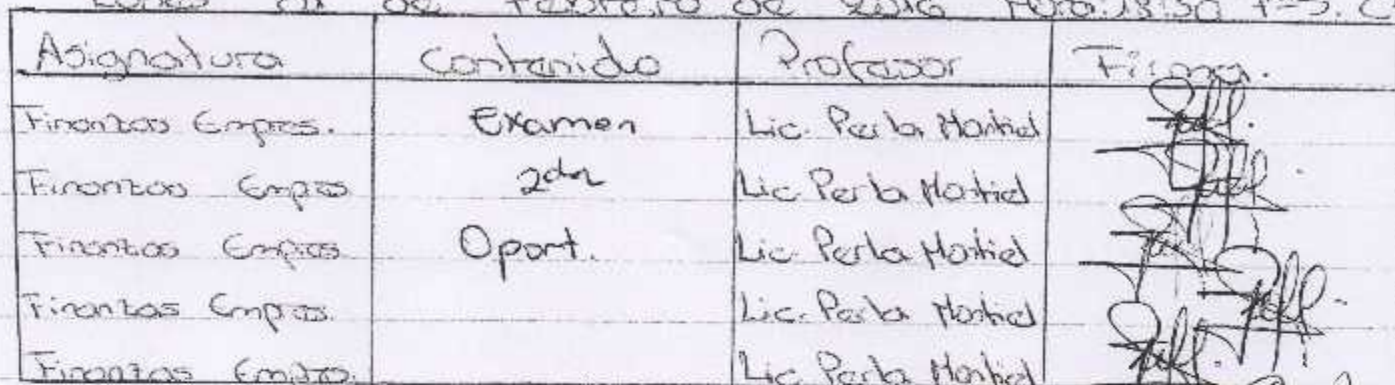 Lunes 01 de Febrero de 2016 Hora: 18:30
Asignatura Contenido Profesor Firma.
Finanzas Empres. Examen Lic. Perla Montiel
Finanzas Empres 2da Lic. Perla Montiel
Finanzas Empres Oport. Lic. Perla Montiel
Finanzas Empres. Lic. Perla Montiel
Finanzas Empres. Lic. Perla Montiel